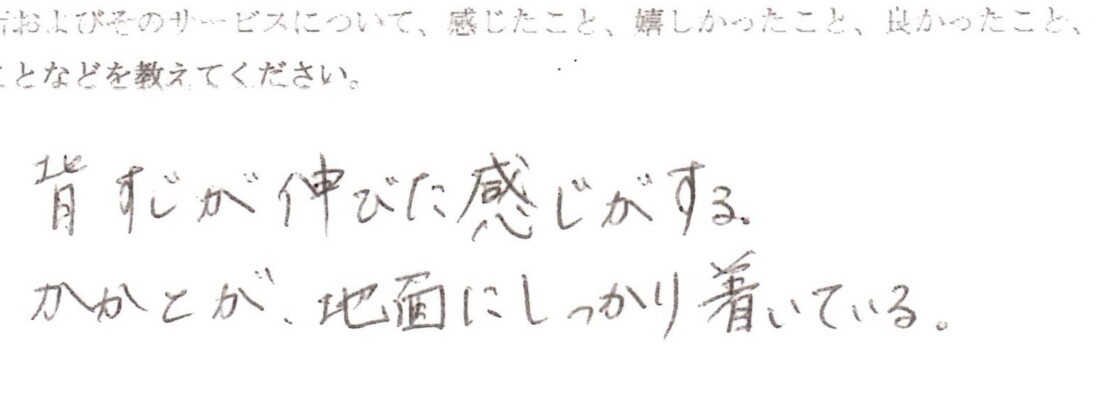 およびそのサービスについて、感じたこと、嬉しかったこと、良かったこと、
ことなどを教えてください。
背すじが伸びた感じがする。
かかとが、地面にしっかり着いている。